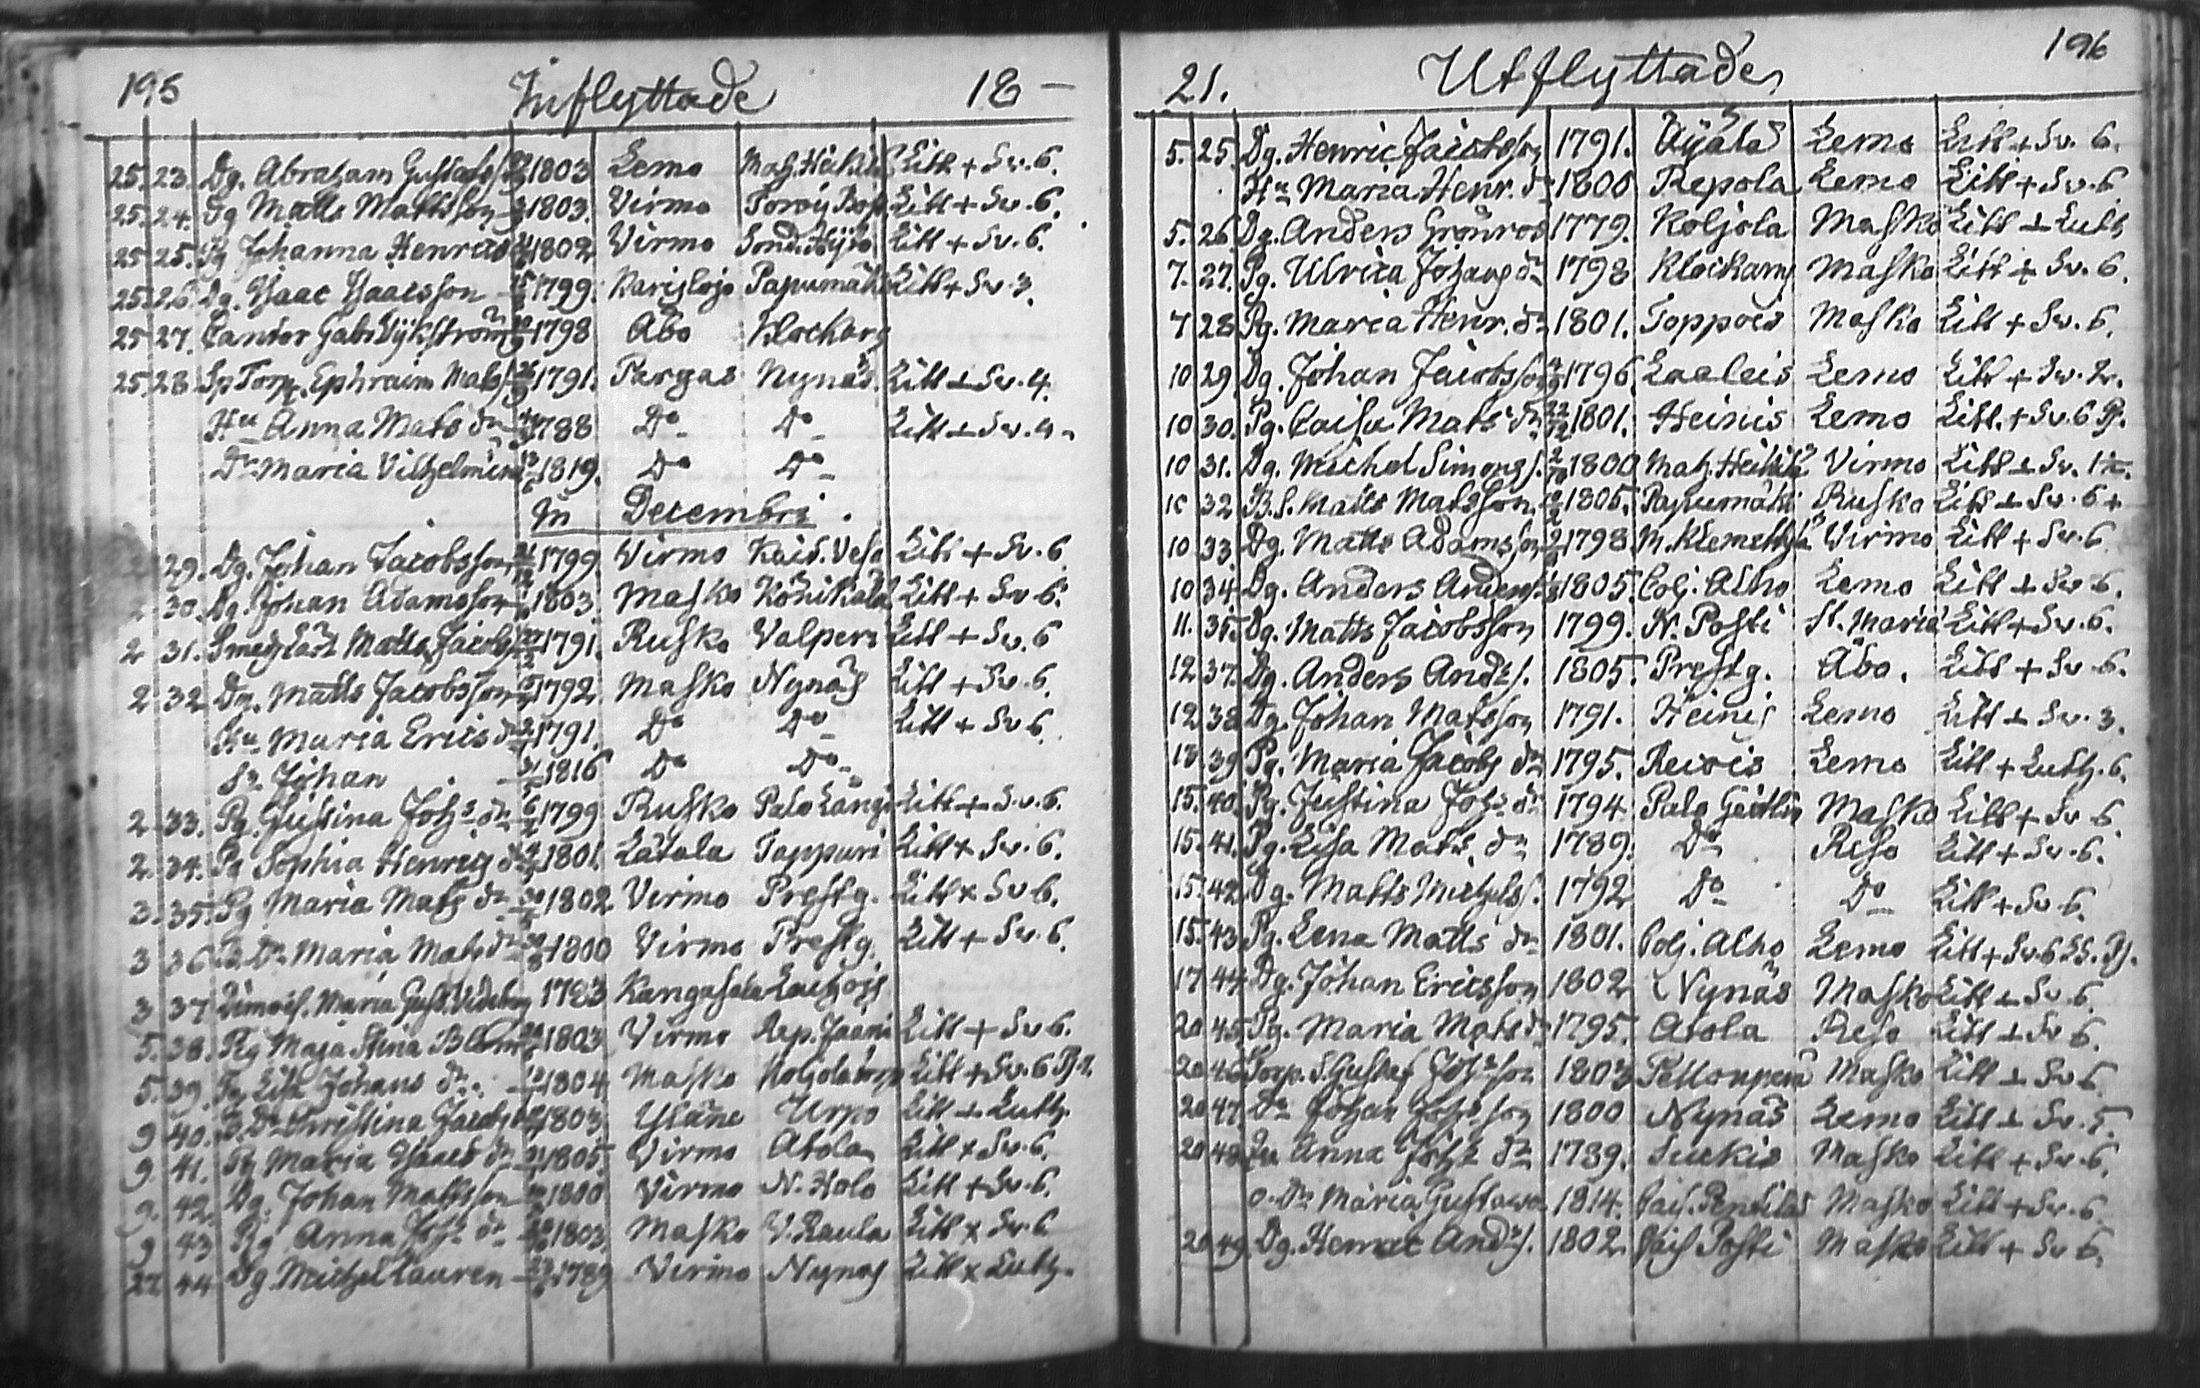 195 Inflyttade 18 —
25. 23. Dg. Abraham Gustafss. 1803 Lemo Matz. Heikilä Litt + Sv. 6.
25. 24. Dg Matts Mattsson 1803. Virmo Torois Litt + Sv. 6.
25 25. Pg Johanna Henrics 1802 Virmo Litt + Sv. 6.
25. 26. Dg. Isaac Isaacsson 1799. Karislojo Papumäki Litt + Sv. 3.
25 27. Cantor Gab. Dykström 1798 Åbo Klockarg
25. 28 Sp Torp. Ephraim Mats 1791. Pargas Nynäs Litt + Sv. 4.
Hu Anna Mats dr 1788 Do Do Litt + Sv. 4.
Dr Maria Vilhelmina 1819. Do Do
In Decembri.
29. Dg. Johan Jacobsson 1799 Virmo Kais. Vesa Litt + Sv. 6
30. Dg. Johan Adamsson 1803. Masko Könikälä Litt + Sv. 6.
2 31. Matts Jacobs 1791. Rusko Valpers Litt + Sv. 6
2 32 Dg. Matts Jacobsson 1792 Masko Nynäs Litt + Sv. 6.
Hu Maria Erics dr 1791. Do Do Litt + Sv 6.
Sn Johan 1816 Do Do
2 33. Pg. Justina Johs. dr 1799 Rusko Palo Längi Litt + Sv. 6.
2. 34. Pg Sophia Henrics dr 1801. Lätala Tappuri Litt + Sv. 6.
3. 35. Pg Maria Mats dr 1802 Virmo Prestg. Litt x Sv 6.
3 36 B. Dr Maria Mats dr 1800 Virmo Prestg. Litt + Sv. 6.
3 37 Maria Gust. 1783 Kangasala
5. 38. Pg Maja Stina Blom 1803 Virmo Rep. Jaeni Litt + Sv 6.
5. 39. Pg Lisa Johans dr 1804 Masko Koljola torp Litt + Sv. 6
9 40. B. Dr Christina Jacobs 1803. Yläne Urpo Litt + Luth.
9. 41. Pg Maria Isaacs dr 1805. Virmo Atola Litt x Sv. 6.
9. 42. Dg. Johan Mattsson 1800 Virmo N. Kolo Litt + Sv. 6.
9 43 Pg Anna Joh. dr 1803 Masko V. Raula Litt x Sv. 6
22 44 Dg. Michel Lauren 1789 Virmo Nynäs Litt x Luth.
21. Utflyttade 196
5. 25. Dg. Henric Jacobsson 1791. Äyälä Lemo Litt + Sv. 6.
Hu Maria Henr. dr 1800 Repola Lemo Litt + Sv. 6
5. 26 Dg. Anders Grönros 1779. Koljola Masko Litt + Luth
7. 27. Pg. Ulrica Johans dr 1798 Klockarg Masko Litt + Sv. 6.
7 28 Pg. Maria Henr. dr 1801. Toppois Masko Litt + Sv. 6.
10 29. Dg. Johan Jacobsson 1796. Laaleis Lemo Litt + Sv. 2.
10 30. Pg. Caisa Mats dr 22/12 1801. Heinis Lemo Litt. + Sv. 6
10 31. Dg. Michel Simons s. 1800 Matz Heikilä Virmo Litt + Sv.
10 32 B. S. Matts Matsson 1805. Papumäki Rusko Litt + Sv. 6 +
10 33. Dg. Matts Adamsson 1798. M. Klemettilä Virmo Litt + Sv. 6
10 34. Dg. Anders Anders. 1805. Colj. Alho Lemo Litt + Sv 6.
11. 35. Dg. Matts Jacobsson 1799. N. Posti St. Maria Litt + Sv. 6.
12 37. Dg. Anders And. s. 1805. Prestg. Åbo. Litt + Sv. 6.
12 38 Dg. Johan Matsson 1791. Heinis Lemo Litt + Sv. 3.
13 39 Pg. Maria Jacobs dr 1795. Reivis Lemo Litt + Luth. 6.
15. 40. Pg. Justina Johs. dr 1794 Palo Geitlin Masko Litt + Sv 6
15. 41. Pg. Lisa Mats. dr 1789. Do Reso Litt + Sv. 6.
15. 42. Dg. Matts Michels s. 1792 Do Do Litt + Sv 6.
15. 43 Pg. Lena Matts dr 1801. Colj. Alho Lemo Litt + Sv. 6
17 44. Dg. Johan Ericsson 1802 Nynäs Masko Litt + Sv 6.
20 45. Pg. Maria Mats dr 1795. Atola Reso Litt + Sv 6.
20 46 Torp. S. Gustaf Johsson 1803 Pellonperä Masko Litt + Sv 6
20 47. Do Johan Johsson 1800 Nynäs Lemo Litt + Sv. 5.
20 48 Anna Johs dr 1789. Suckis Masko Litt + Sv. 6.
o. Dr Maria Gustava 1814. Cais. Pentilä Masko Litt + Sv. 6
20 49 Dg. Henric And. s. 1802. Cais Posti Masko Litt + Sv 6.